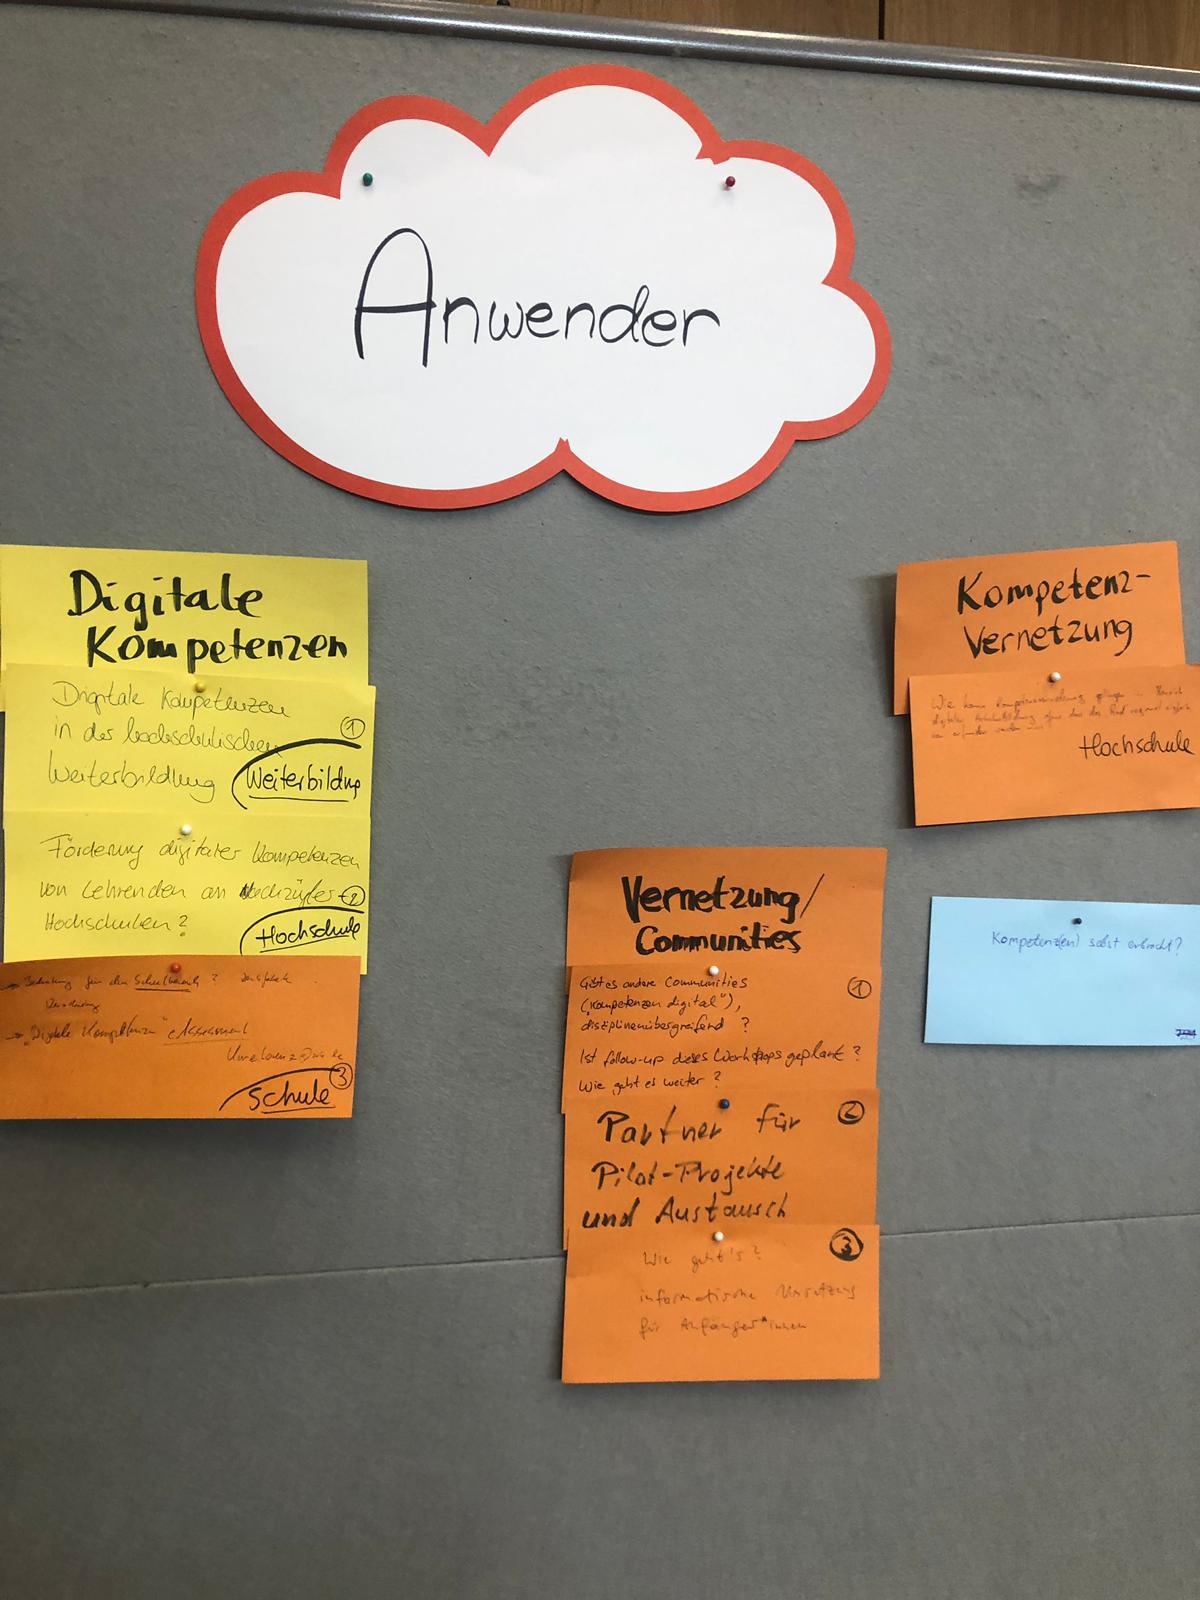 Anwender
Digitale
Kompetenzen
Digitale Kompetenzen
in der hochschulischen
Weiterbildung
①
Weiterbildung
Förderung digitaler Kompetenzen
von Lehrenden an
Hochschulen?
②
Hochschule
→ Bedeutung für den Schulbereich?
→ "Digitale Kompetenzen" eAssessment
③
Schule
Vernetzung/
Communities
Gibt es andere Communities
("Kompetenzen digital"),
disziplinenübergreifend ?
①
Ist follow-up dieses Workshops geplant?
Wie geht es weiter?
Partner für
Pilot-Projekte
und Austausch
②
Wie geht's?
informatische Umsetzung
für Anfänger*innen
③
Kompetenz-
Vernetzung
Wie kann
digitalen
Hochschule
Kompetenz(en) selbst erbracht?